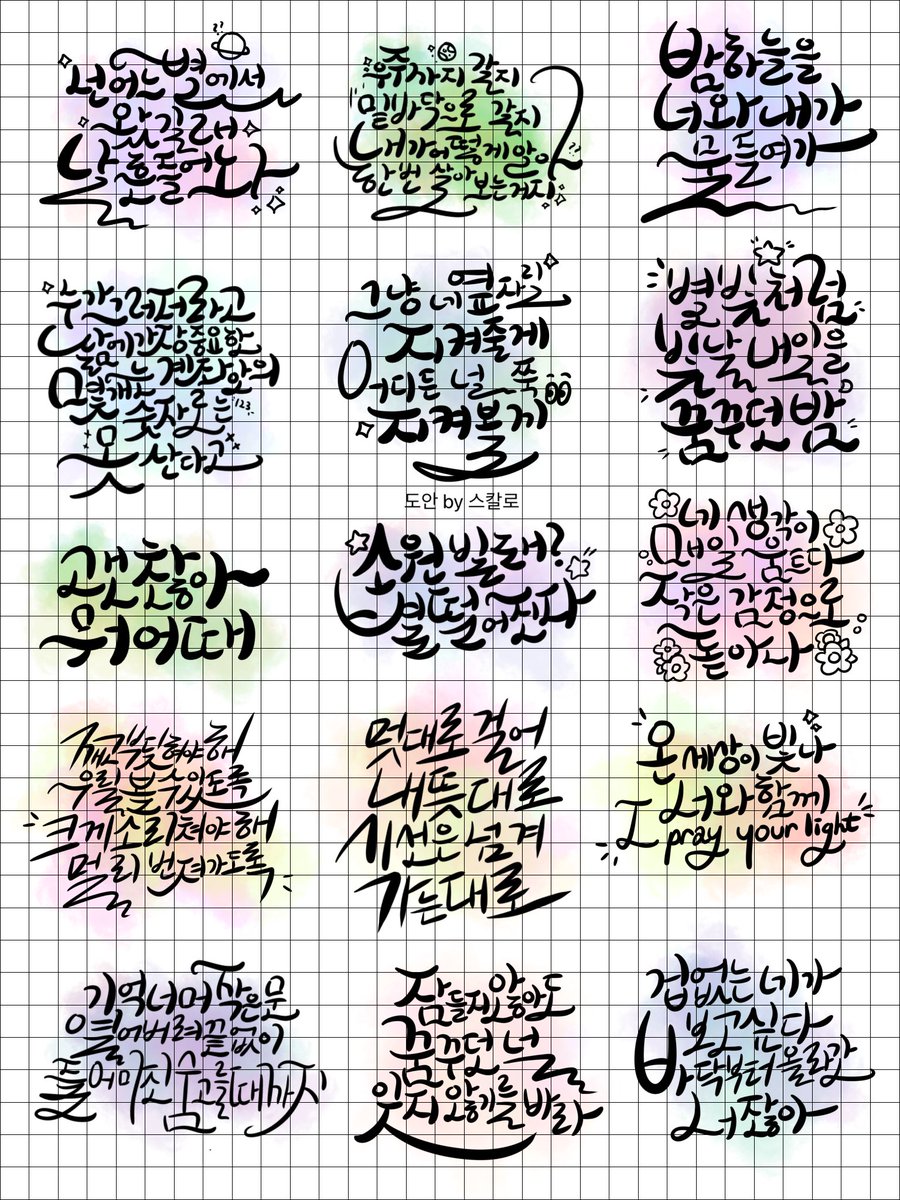 넌 어느 별에서
왔길래
날 흔들어 놔
우주까지 갈지
밑바닥으로 갈지
내가 어떻게 알아
한번 살아보는거지
밤하늘을
너와 내가
물들여가
누가 그러더라고
삶에 가장 중요한
몇 개는 계좌 안의
숫자로는 123
못 산다고
그냥 네 옆자리
지켜줄게
어디든 널 쭉
지켜볼게
별빛처럼
빛날 내일을
꿈꾸던 밤
도안 by 스칼로
괜찮아
뭐 어때
소원 빌래?
별 떨어진다
네 생각이
매일 움트다
작은 감정으로
돋아나
깨고 부딪혀야 해
우릴 볼 수 있도록
크게 소리쳐야 해
멀리 번져가도록
멋대로 걸어
내 뜻대로
시선은 넘겨
가는대로
온 세상이 빛나
너와 함께
I pray your light
기억 너머 작은 문
열어버려 끝없이
들어마신 숨 고를 때까지
잠들지 않아도
꿈꾸던 널
잊지 않기를 바라
겁없는 네가
보고싶다
바닥부터 올라갔
너잖아